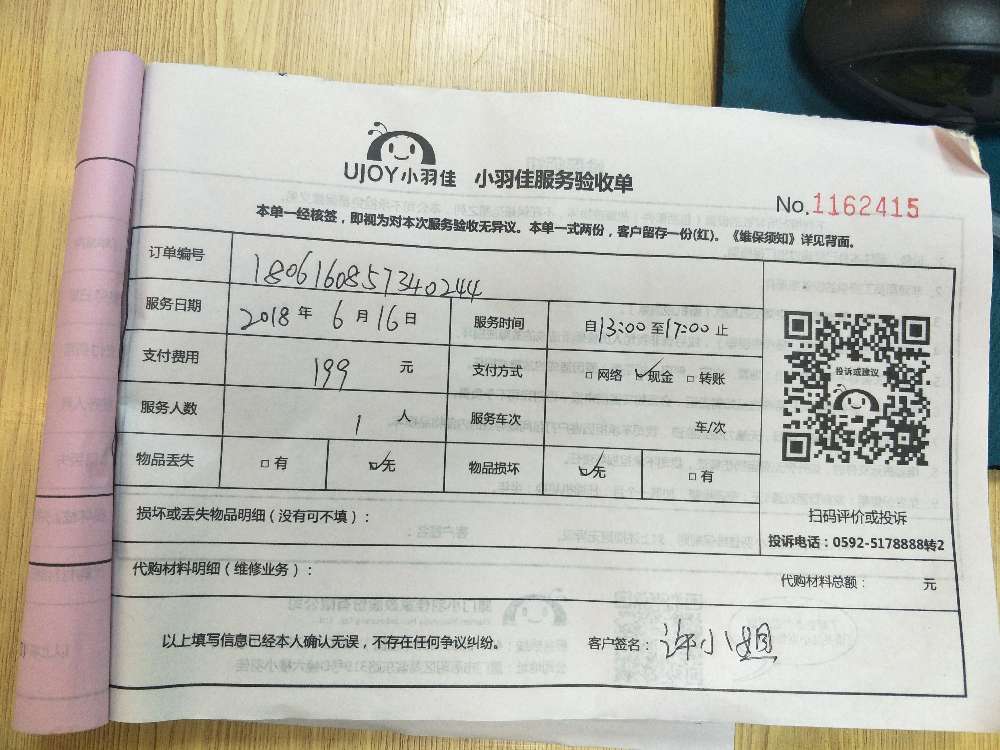 UJOY小羽佳 小羽佳服务验收单
No.1162415
本单一经核签，即视为对本次服务验收无异议。本单一式两份，客户留存一份(红)。《维保须知》详见背面。
订单编号 1806160857340244
服务日期 2018 年 6 月 16 日 服务时间 自13:00至17:00止
支付费用 199 元 支付方式 □网络 ☑现金 □转账
服务人数 1 人 服务车次 车/次
物品丢失 □有 ☑无 物品损坏 ☑无 □有
投诉或建议
扫码评价或投诉
投诉电话：0592-5178888转2
损坏或丢失物品明细（没有可不填）：
代购材料明细（维修业务）： 代购材料总额： 元
以上填写信息已经本人确认无误，不存在任何争议纠纷。 客户签名：许小姐